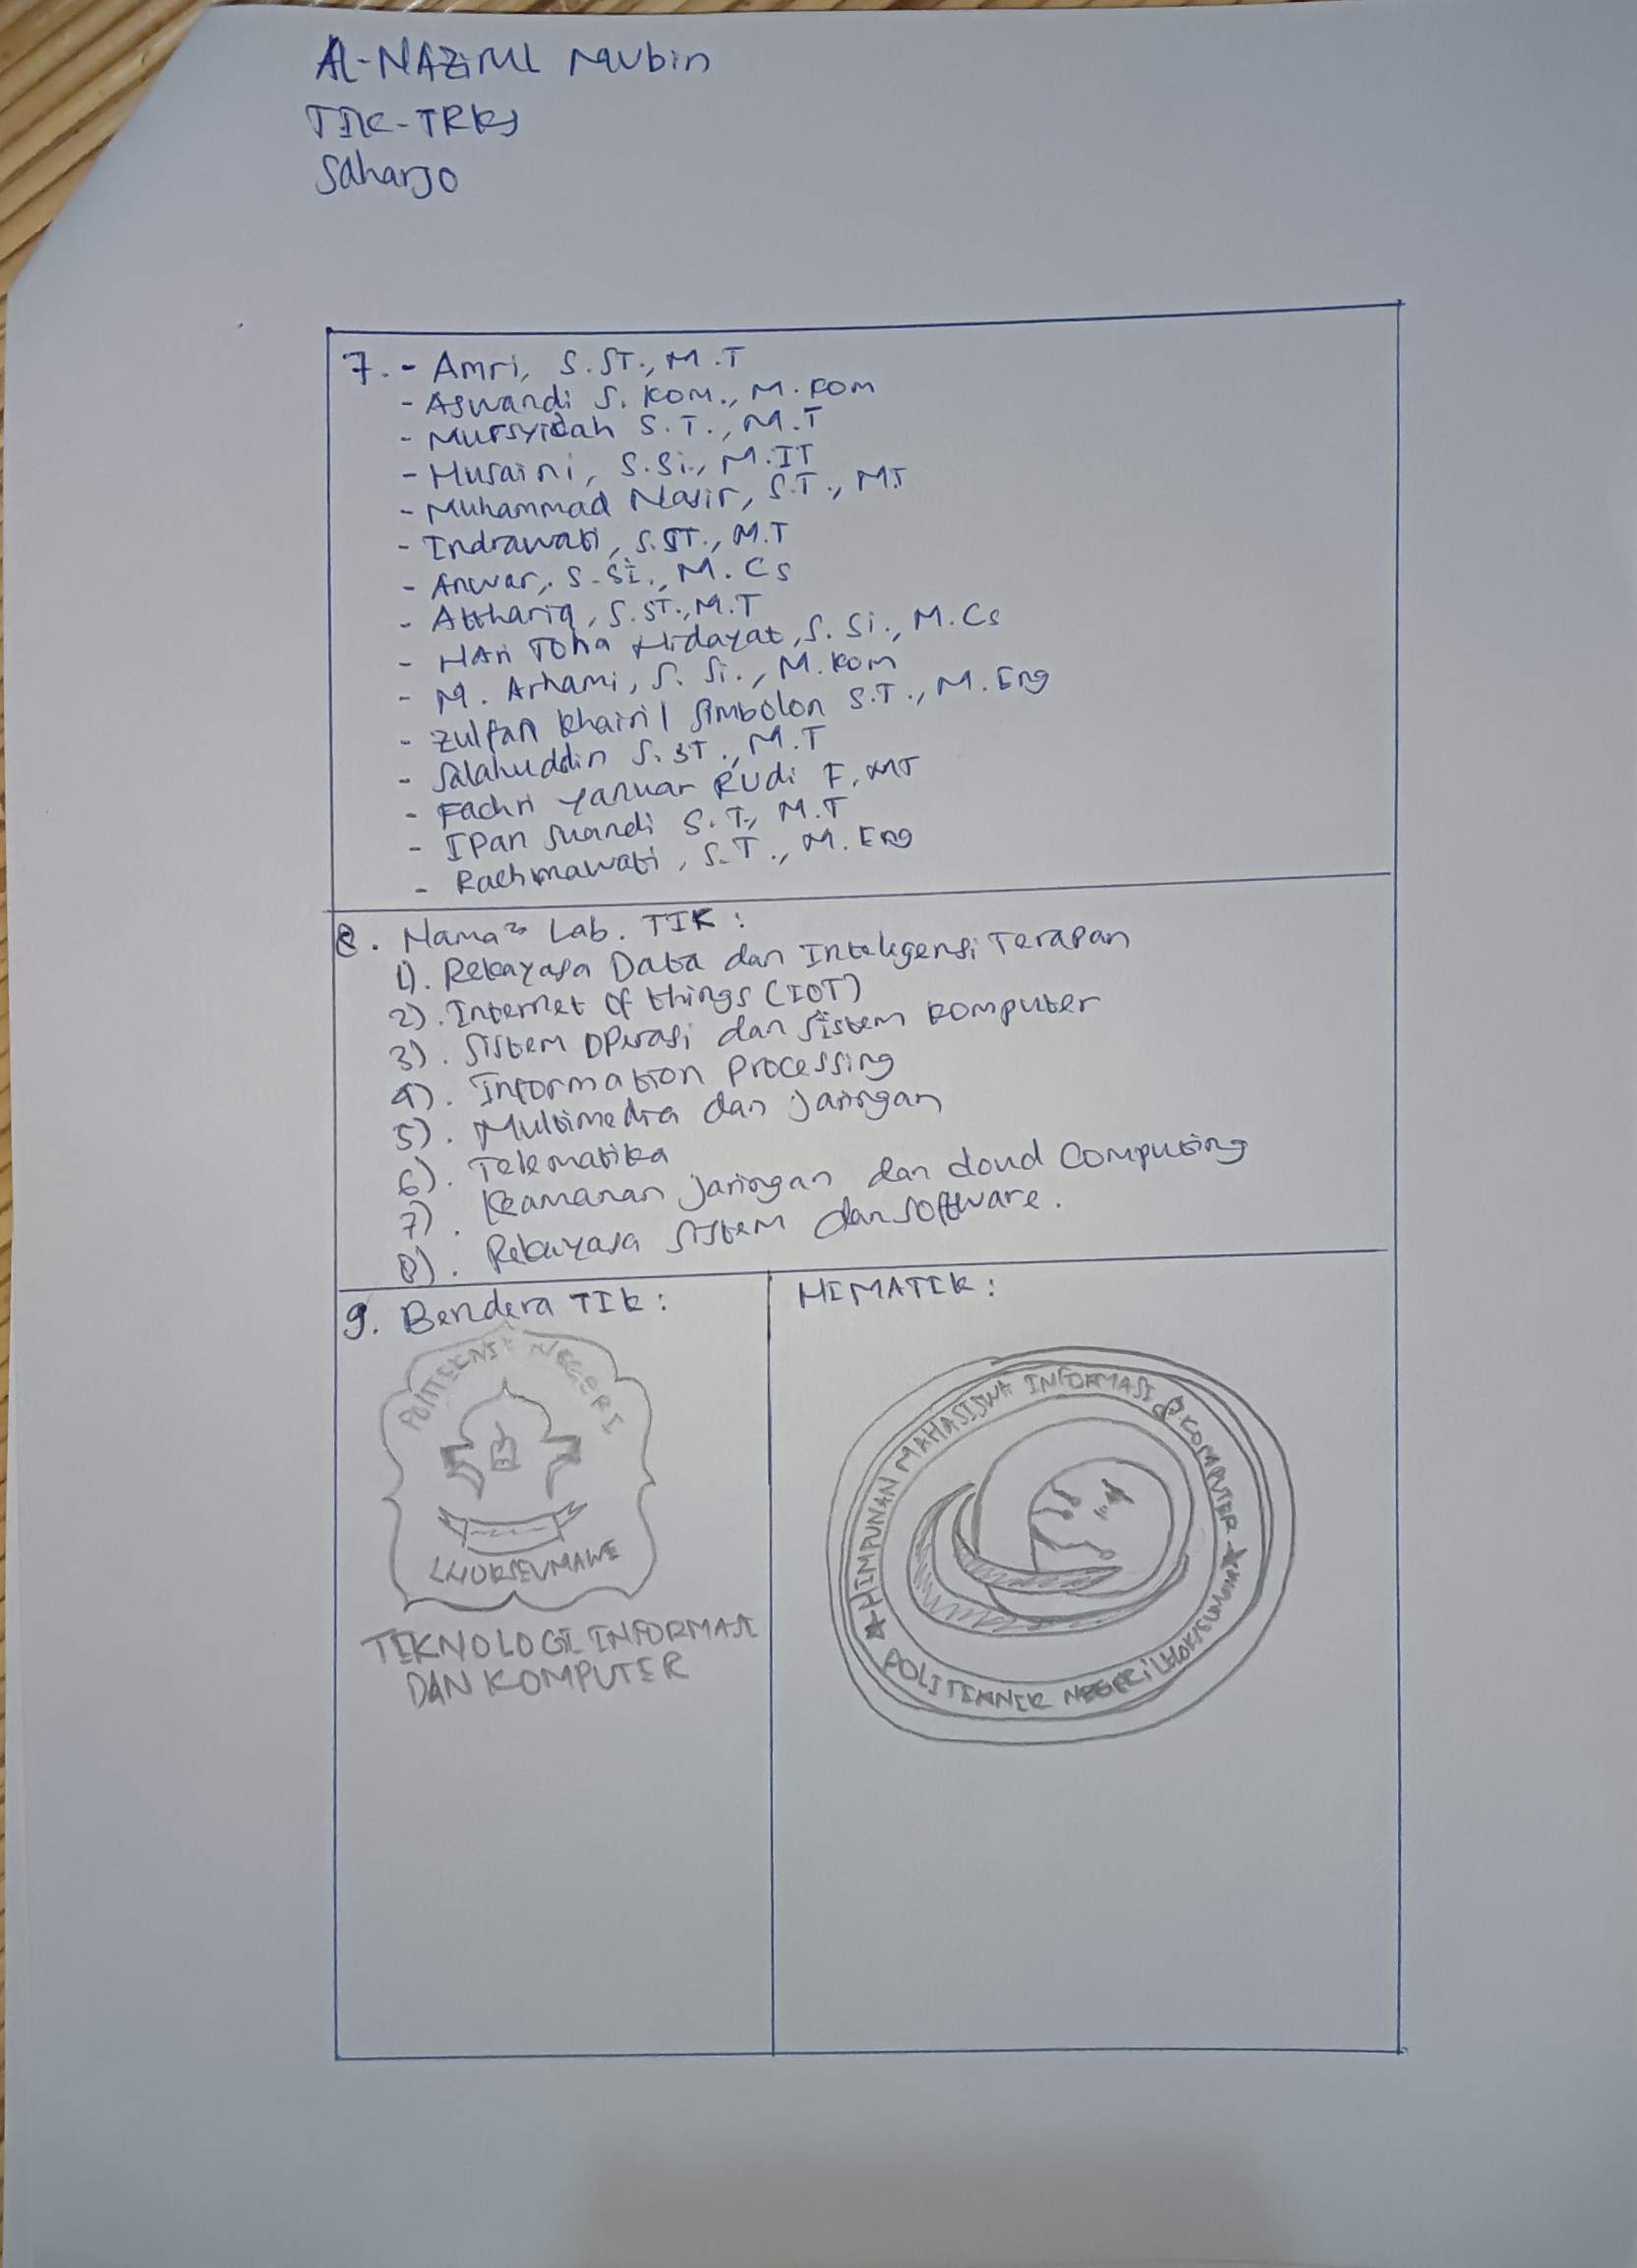 Al-NAZirul Mubin
TIK-TRKJ
Saharjo
7. - Amri, S.ST., M.T
- Aswandi S. Kom., M. Kom
- Mursyidah S.T., M.T
- Husaini, S.Si., M.IT
- Muhammad Nasir, S.T., MT
- Indrawati, S.ST., M.T
- Anwar, S.Si., M.Cs
- Atthariq, S.ST., M.T
- HAri Toha Hidayat, S. Si., M.Cs
- M. Arhami, S. Si., M. Kom
- Zulfan Khairil Simbolon S.T., M. Eng
- Salahuddin S.ST., M.T
- Fachri Yanuar Rudi F, MT
- Ipan Suandi S.T., M.T
- Rachmawati, S.T., M. Eng
8. Nama² Lab. TIK :
1). Rekayasa Data dan Inteligensi Terapan
2). Internet Of things (IOT)
3). Sistem Operasi dan Sistem Komputer
4). Information Processing
5). Multimedia dan Jaringan
6). Telematika
7). Keamanan Jaringan dan Cloud Computing
8). Rekayasa Sistem dan Software.
9. Bendera TIK :
POLITEKNIK NEGERI
LHOKSEUMAWE
TEKNOLOGI INFORMASI
DAN KOMPUTER
HIMATIK :
HIMPUNAN MAHASISWA INFORMASI & KOMPUTER
POLITEKNIK NEGERI LHOKSEUMAWE